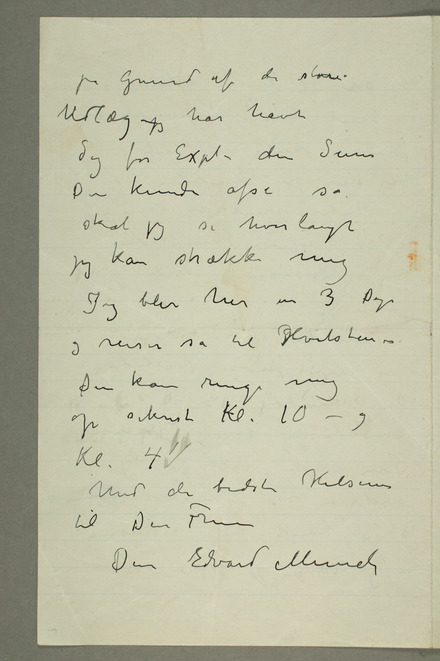 på Grund af de store
Udlæg jeg har havt
Sig for Expl. den Sum
De kunde afse så
skal jeg se hvor langt
jeg kan strække mig
Jeg blir her en 3 Dage
og reiser så til Hvitsten –
De kan ringe mig
op sikrest Kl. 10 – og
Kl. 4
Med de bedste Hilsener
til Deres Frue
Deres Edvard Munch